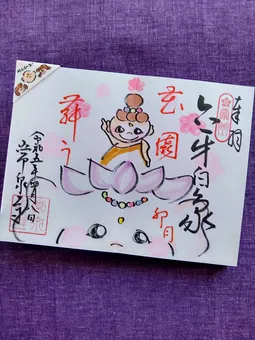 奉拝
六牙白象
卯月
花園
舞う
令和五年四月八日
常泉寺